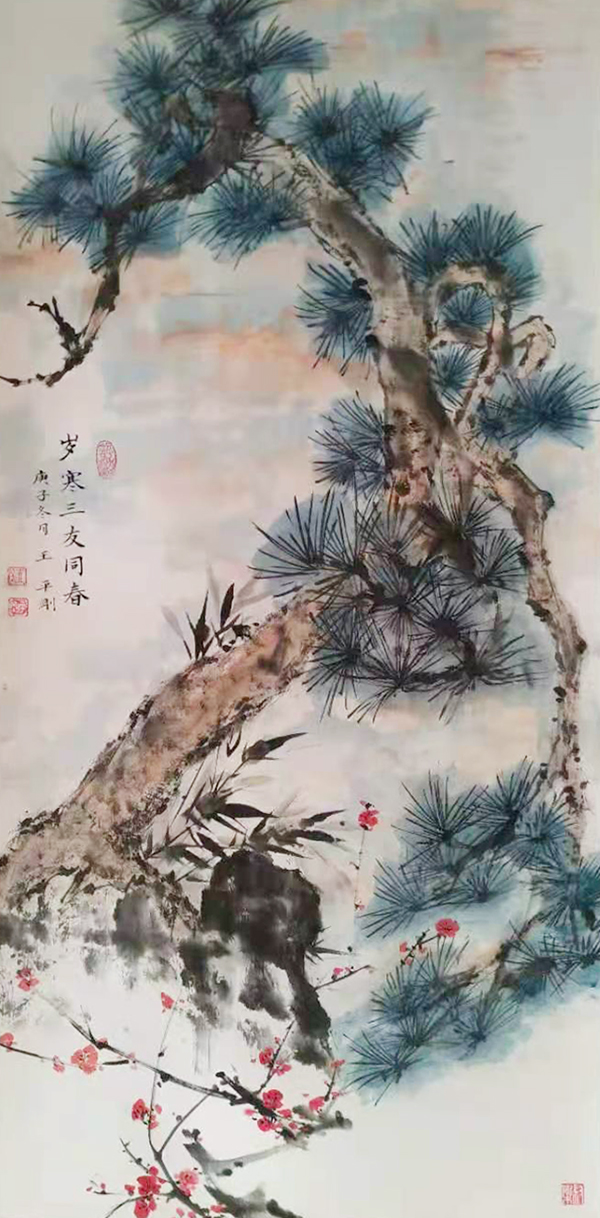 岁寒三友同春
庚子冬月王平刚